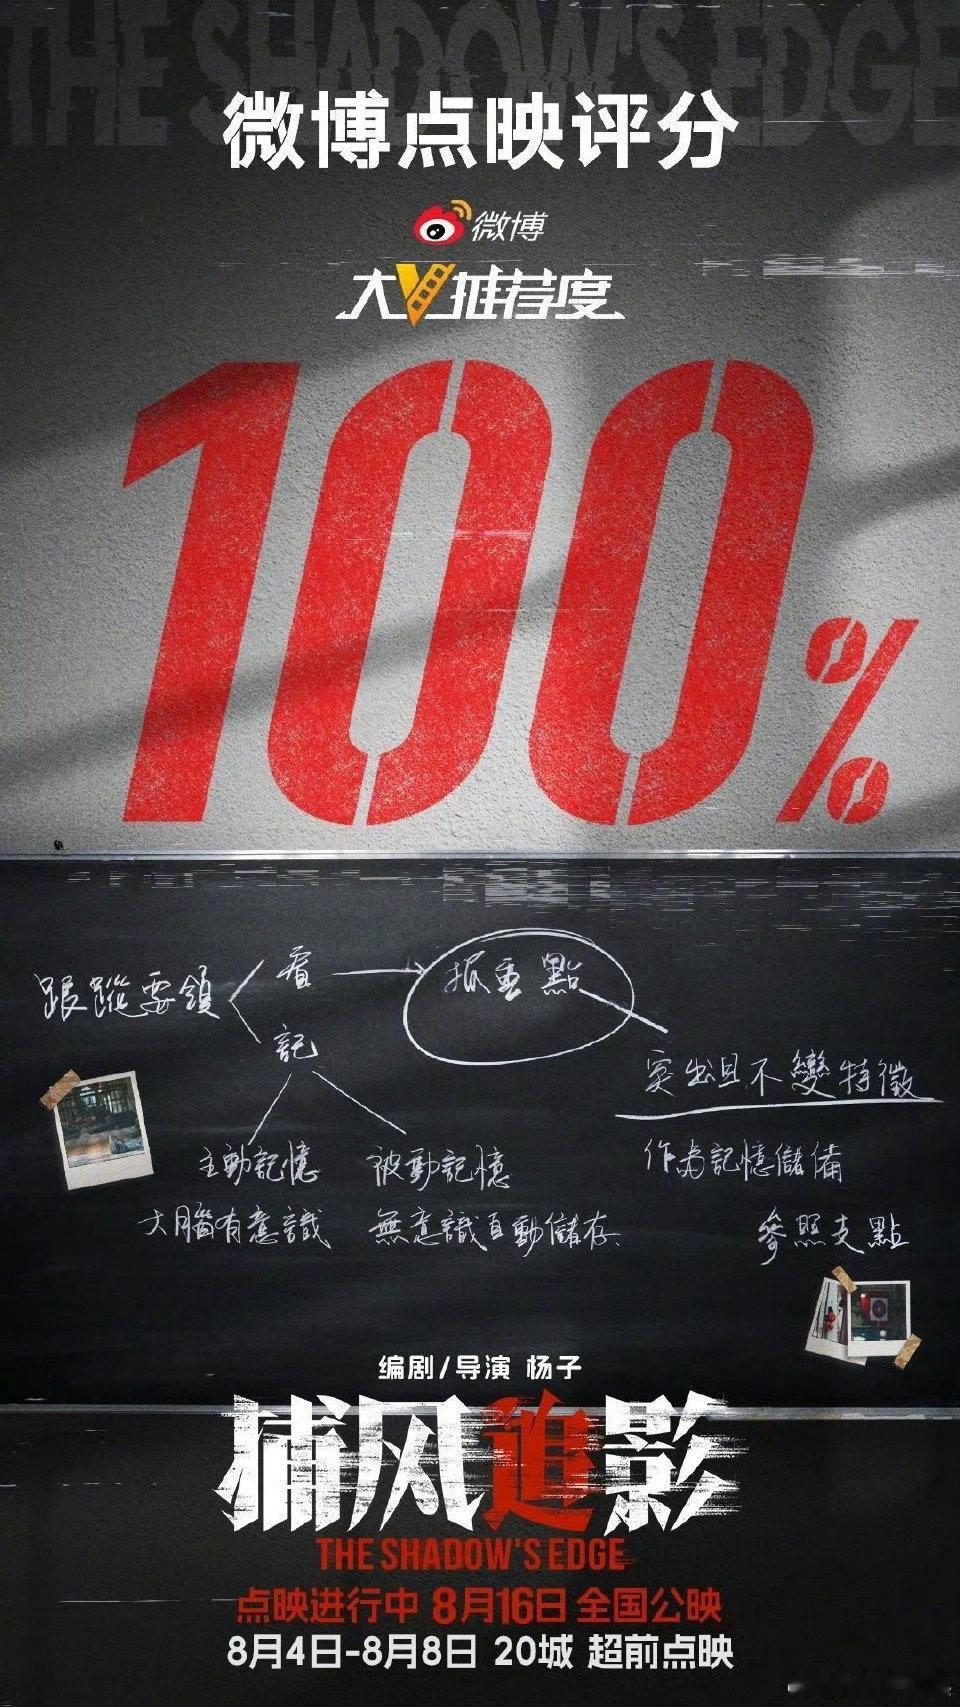 THE SHADOW'S EDGE
微博点映评分
微博
大V推荐度
100%
跟蹤要領
看
抓重點
記
突出且不變特徵
主動記憶
被動記憶
作為記憶儲備
大腦有意識
無意識自動儲存
參照支點
编剧/导演 杨子
捕风追影
THE SHADOW'S EDGE
点映进行中 8月16日 全国公映
8月4日-8月8日 20城 超前点映